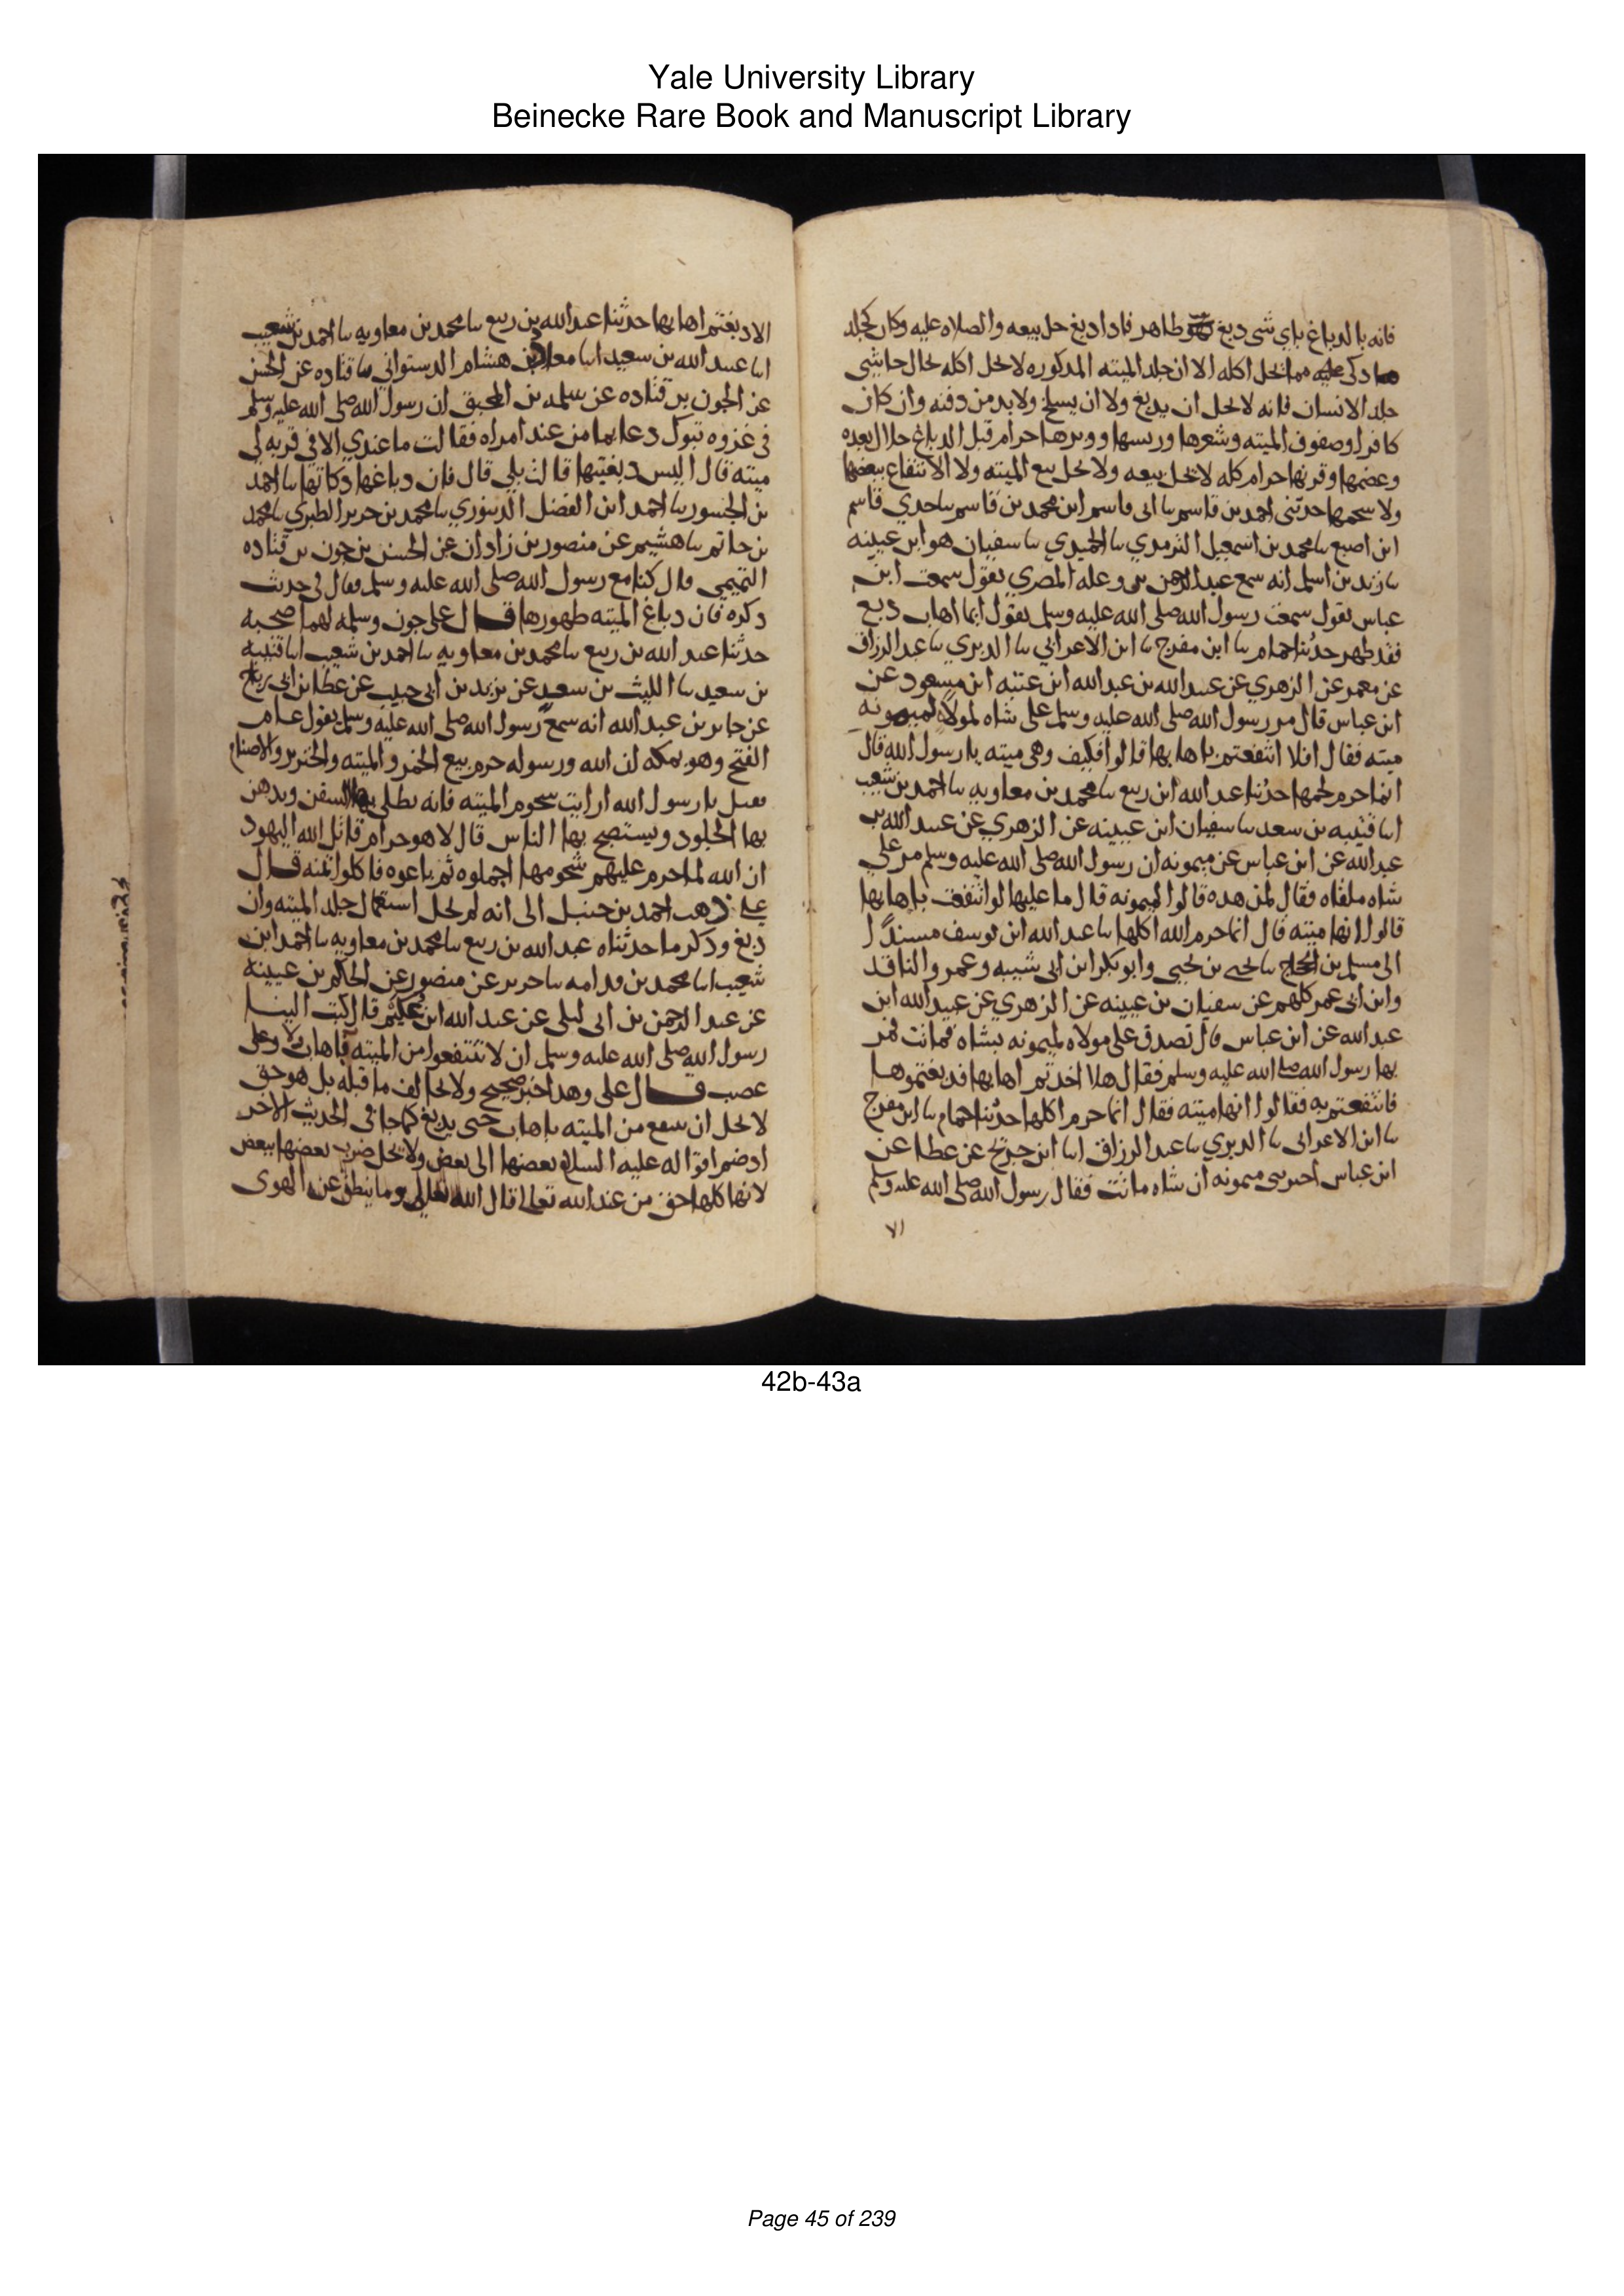 Yale University Library
Beinecke Rare Book and Manuscript Library
فانه بالدباغ باي شي دبغ طاهر فاذا دبغ حل بيعه والصلاه عليه وكان كجلد
ما ذكى مما يحل اكله الا ان جلد الميته المذكوره لا يحل اكله بحال حاشى
جلد الانسان فانه لا يحل ان يدبغ ولا ان يسلخ ولا بد من دفنه وان كان
كافرا وصوف الميته وشعرها وريشها ووبرها حرام قبل الدباغ حلال بعده
وعظمها وقرنها حرام كله لا يحل بيعه ولا يحل بيع الميته ولا الانتفاع ببعضها
ولا شحمها حدثنى احمد بن قاسم سا ابى قاسم ابن محمد بن قاسم سا جدي قاسم
ابن اصبغ سا محمد بن اسمعيل الترمدي سا الحميدي سا سفيان هو ابن عيينه
سا زيد بن اسلم انه سمع عبد الرحمن بن وعله المصري يقول سمعت ابن
عباس يقول سمعت رسول الله صلى الله عليه وسلم يقول ايما اهاب دبغ
فقد طهر حدثنا حمام سا ابن مفرج سا ابن الاعرابي سا الدبري سا عبد الرزاق
عن معمر عن الزهري عن عبيد الله بن عبد الله ابن عتبه ابن مسعود عن
ابن عباس قال مر رسول الله صلى الله عليه وسلم على شاه لمولاه لميمونه
ميته فقال افلا انتفعتم باهابها قالوا فكيف وهي ميته يا رسول الله قال
انما حرم لحمها حدثنا عبد الله ابن ربيع سا محمد بن معاويه سا احمد بن شعيب
انا قتيبه بن سعيد سا سفيان ابن عيينه عن الزهري عن عبيد الله بن
عبد الله عن ابن عباس عن ميمونه ان رسول الله صلى الله عليه وسلم مر على
شاه ملقاه فقال لمن هده قالوا لميمونه قال ما عليها لو انتفعت باهابها
قالوا انها ميته قال انما حرم الله اكلها سا عبد الله ابن يوسف مسندا
الى مسلم بن الحجاج سا يحيى بن يحيى وابو بكر ابن ابى شيبه وعمرو الناقد
وابن ابى عمر كلهم عن سفيان بن عيينه عن الزهري عن عبيد الله ابن
عبد الله عن ابن عباس قال تصدق على مولاه لميمونه بشاه فماتت فمر
بها رسول الله صلى الله عليه وسلم فقال هلا اخدتم اهابها فدبغتموها
فانتفعتم به فقالوا انها ميته فقال انما حرم اكلها حدثنا حمام سا ابن مفرج
سا ابن الاعرابى سا الدبري سا عبد الرزاق انا ابن جريج عن عطا عن
ابن عباس اخبرتني ميمونه ان شاه ماتت فقال رسول الله صلى الله عليه وسلم
الا دبغتم اهابها حدثنا عبد الله بن ربيع سا محمد بن معاويه سا احمد بن شعيب
انا عبيد الله بن سعيد انا معاذ بن هشام الدستوائي سا قتاده عن الحسن
عن الجون بن قتاده عن سلمه بن المحبق ان رسول الله صلى الله عليه وسلم
في غزوه تبوك دعا بما من عند امراه فقالت ما عندي الا في قربه لى
ميته قال اليس دبغتيها قالت بلي قال فان دباغها دكاتها سا احمد
بن الجسور سا احمد ابن الفضل الدينوري سا محمد بن جرير الطبري سا محمد
بن حاتم سا هشيم عن منصور بن زادان عن الحسن بن جون بن قتاده
التميمي قال كنا مع رسول الله صلى الله عليه وسلم فقال في حديث
دكره فان دباغ الميته طهورها قال علي جون وسلمه لهما صحبه
حدثنا عبد الله بن ربيع سا محمد بن معاويه سا احمد بن شعيب انا قتيبه
بن سعيد سا الليث بن سعد عن يزيد بن ابى حبيب عن عطا بن ابى رباح
عن جابر بن عبد الله انه سمع رسول الله صلى الله عليه وسلم يقول عام
الفتح وهو بمكه ان الله ورسوله حرم بيع الخمر والميته والخنزير والاصنام
فقيل يا رسول الله ارايت شحوم الميته فانه يطلى بها السفن ويدهن
بها الجلود ويستصبح بها الناس قال لا هو حرام قاتل الله اليهود
ان الله لما حرم عليهم شحومها اجملوه ثم باعوه فاكلوا ثمنه قال
علي ذهب احمد بن حنبل الى انه لا يحل استعمال جلد الميته وان
دبغ ودكر ما حدثناه عبد الله بن ربيع سا محمد بن معاويه سا احمد ابن
شعيب انا محمد بن قدامه سا جرير عن منصور عن الحكم بن عيينه
عن عبد الرحمن بن ابى ليلى عن عبد الله ابن عكيم قال كتب الينا
رسول الله صلى الله عليه وسلم ان لا تنتفعوا من الميته باهاب ولا
عصب قال على وهدا خبر صحيح ولا يخالف ما قبله بل هو حق
لا يحل ان ينتفع من الميته باهاب حتى يدبغ كما جا في الحديث الاخر
اد ضم اقواله عليه السلام بعضها الى بعض ولا يحل ضرب بعضها ببعض
لانها كلها حق من عند الله تعالى قال الله تعالى وما ينطق عن الهوى
42b-43a
Page 45 of 239